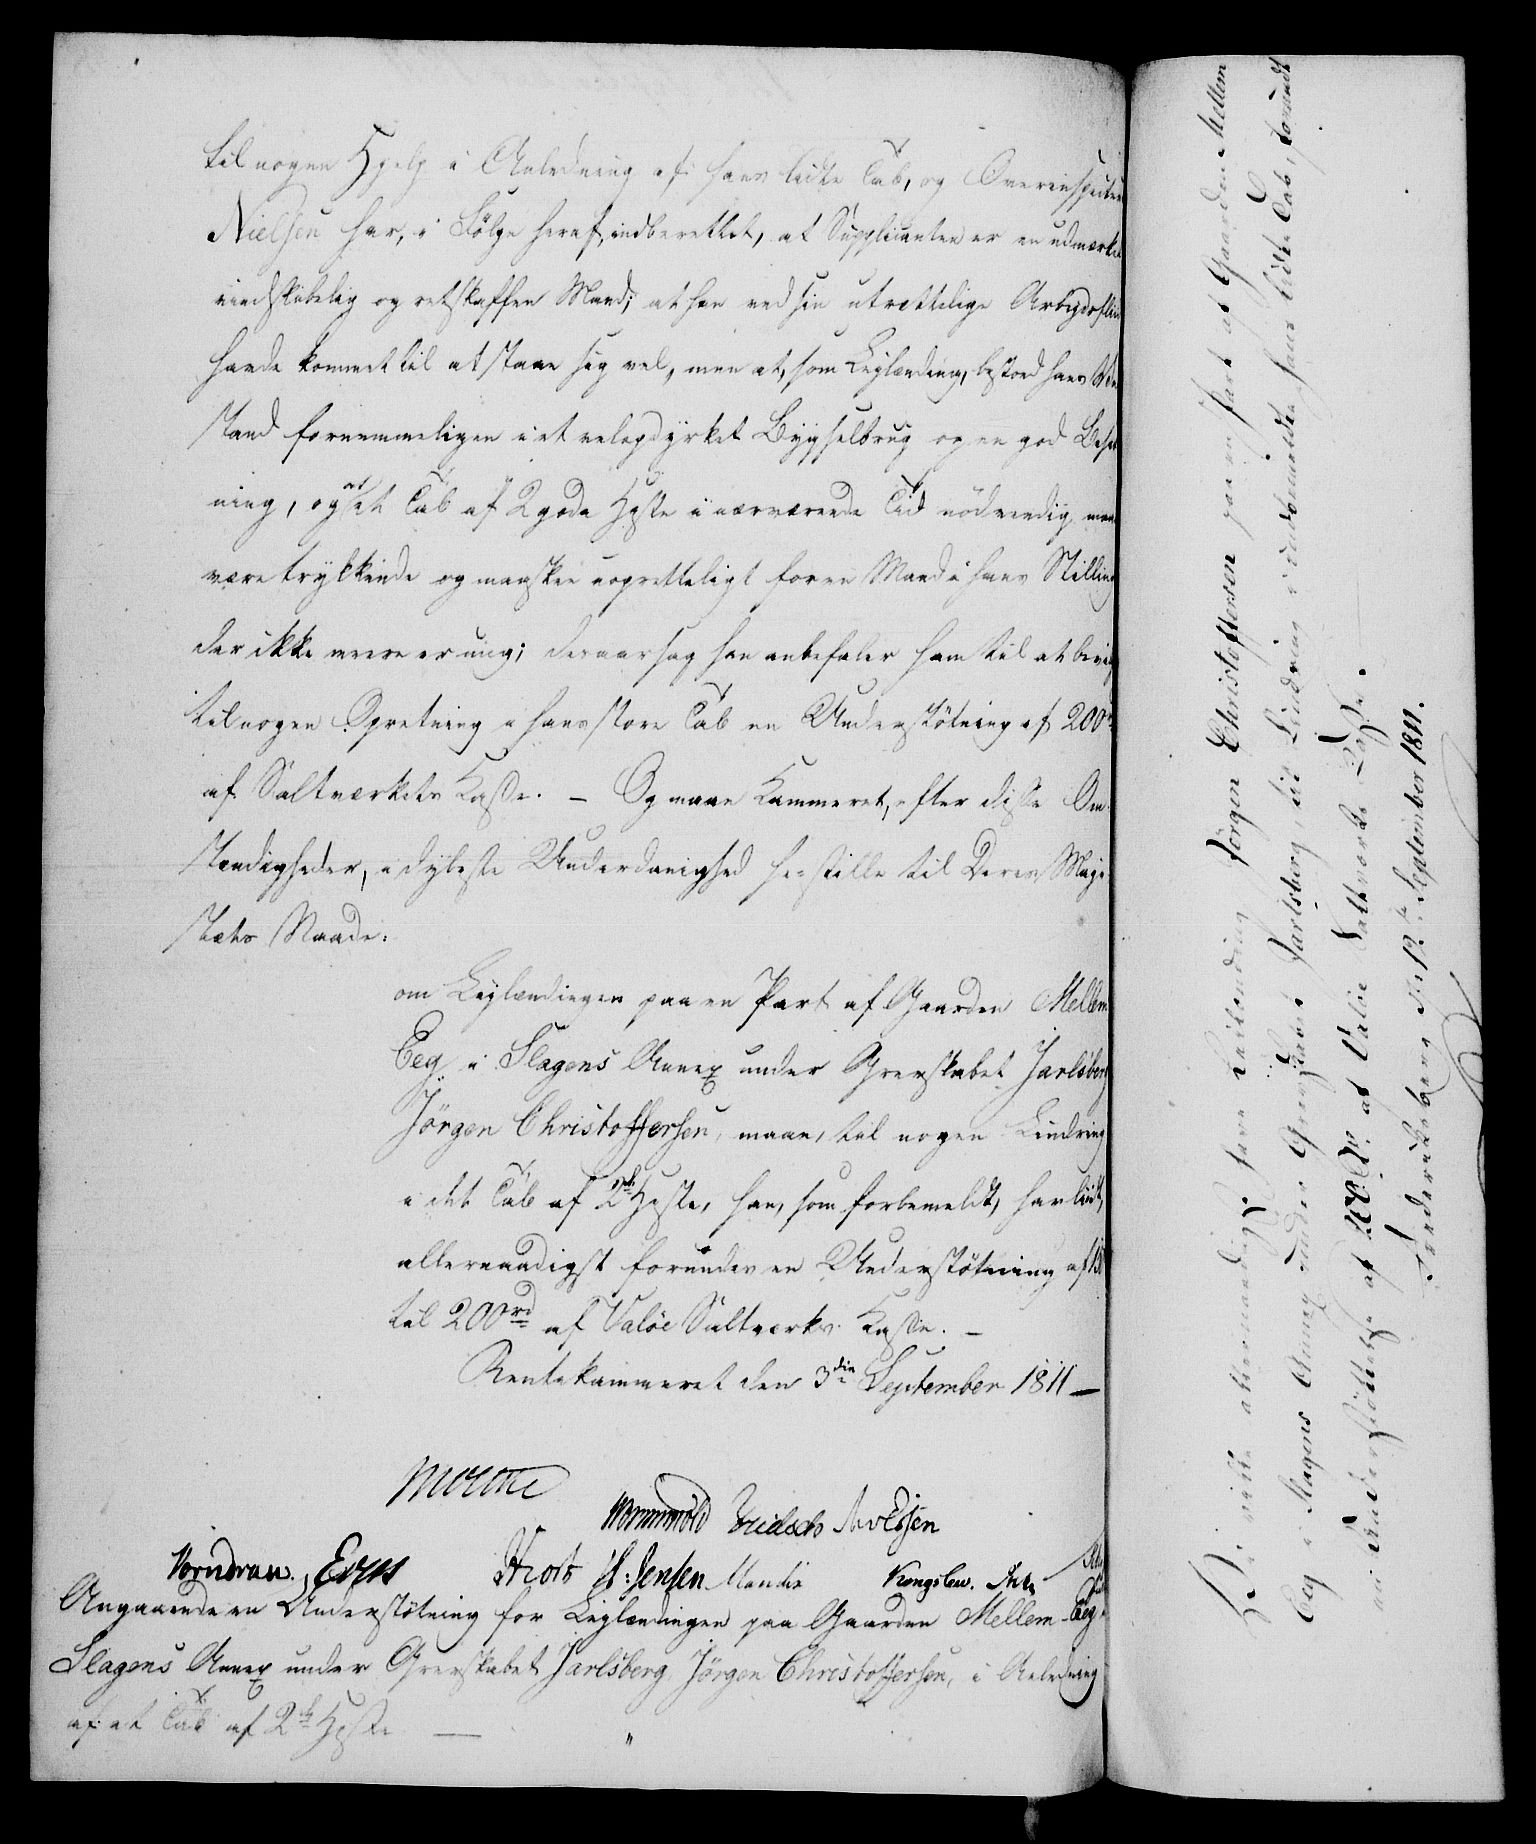 til nogen Hjelp i Anledning af hans lidte Tab, og Overinspecteur
Nielsen har, i Følge heraf, indberettet, at Supplicanten er en udmærket
vindskibelig og retskaffen Mand; at han ved sin utrættelige Arbejdsflid
havde kommet til at staae sig vel, men at, som Leylænding, bestod hans Vel
stand fornemmeligen i et velopdyrket Bygselbrug og en god Besæt
ning, og at et Tab af 2 gode Heste i nærværende Tid nödvendig maae
være trykkende og maaskee uopretteligt for en Mand i hans Stilling
der ikke mere er ung; desaarsag han anbefaler ham til at bevilges
til nogen Opretning i hans store Tab en Understötning af 200 rd
af Saltværkets Kasse. — Og maae Kammeret, efter disse Om
stændigheder, i dybeste Underdanighed henstille til Deres Maje
stæts Naade:
om Leylændingen paa en Part af Gaarden Mellem
Eeg i Slagens Annex under Grevskabet Jarlsberg
Jörgen Christoffersen, maae, til nogen Lindring
i det Tab af 2de Heste, han, som forbemeldt, har lidt,
allernaadigst forundes en Understötning af 150
til 200 rd af Valöe Saltværks Kasse. —
Rentekammeret den 3die September 1811 —
Wormskiold
Vorndran.
H: Jensen
Angaaende en Understötning for Leylændingen paa Gaarden Mellem Eeg i
Slagens Annex under Grevskabet Jarlsberg Jörgen Christoffersen, i Anledning
af et Tab af 2de Heste —
Vi ville allernaadigst have Leilænding Jörgen Christoffersen paa en Part af Gaarden Mellem
Eeg i Slagens Annex under Grevskabet Jarlsberg, til Lindring i indbemeldte hans lidte Tab, forundt
en Understöttelse af 200 rd af Valöe Saltværks Kasse.
Frederiksberg den 12te September 1811.